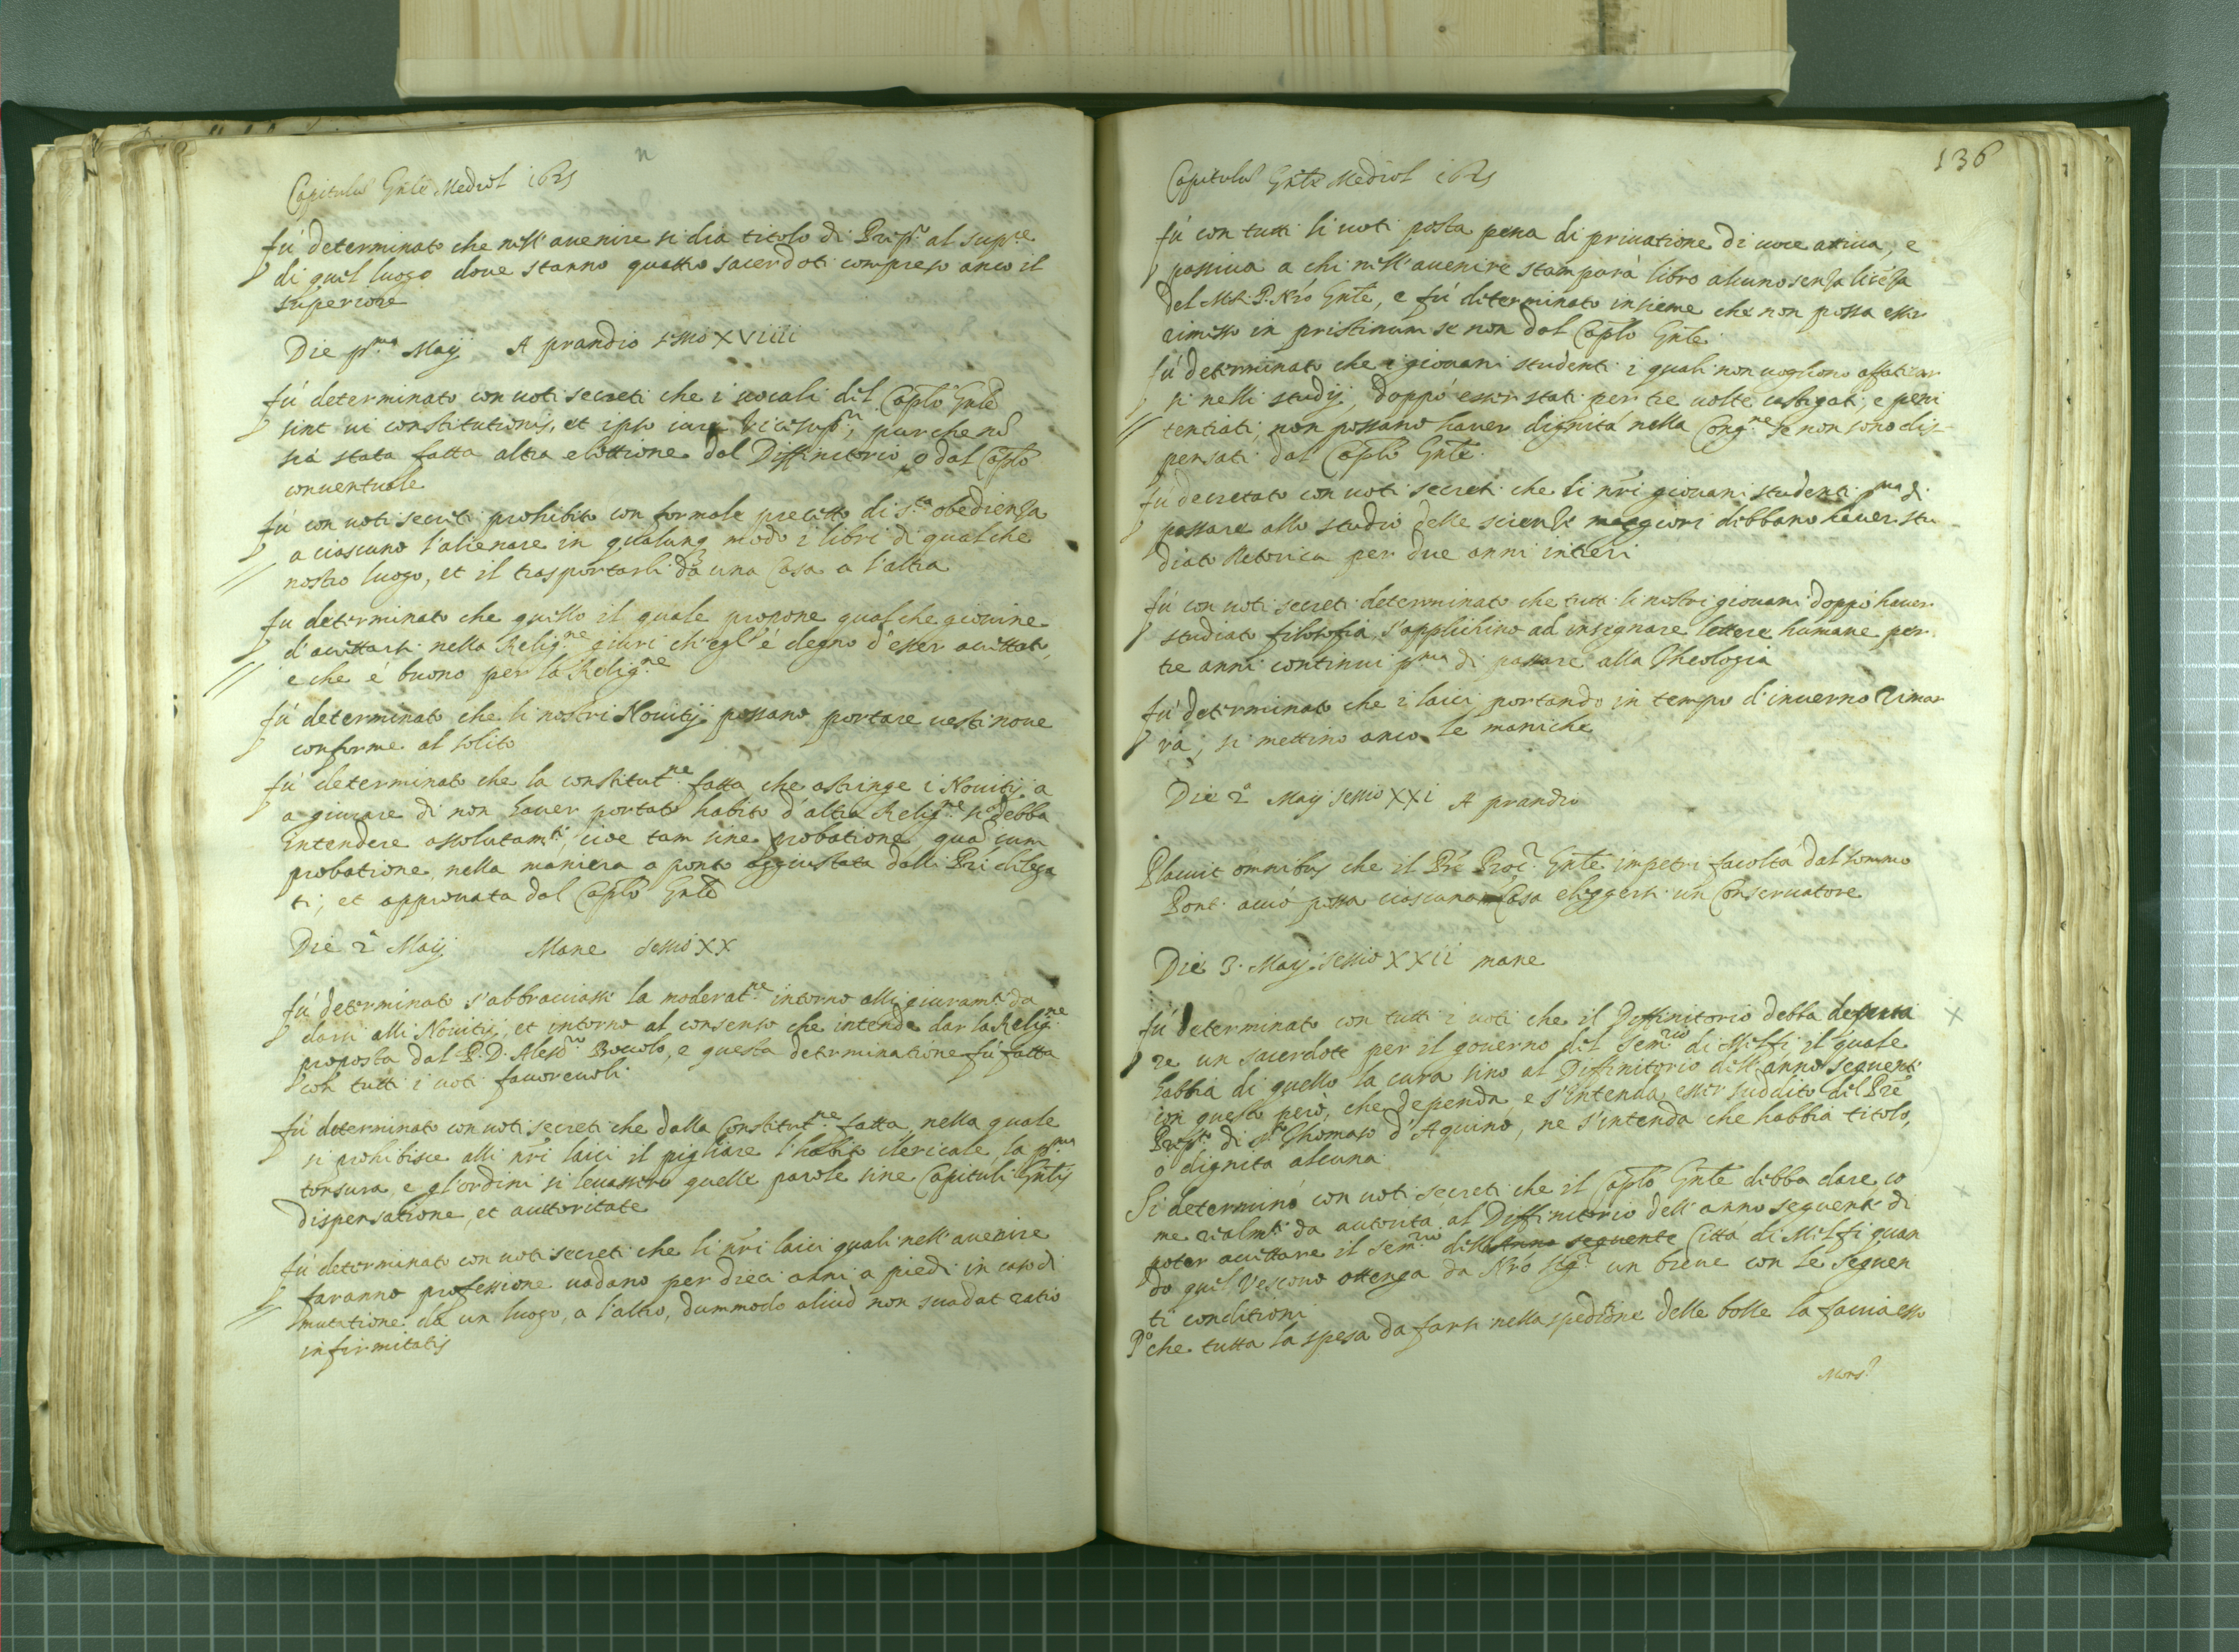 Capitulũ Gñle Mediol 1625
fù determinato che nell'auenire si dia titolo di Prep.to al sup.re
di quel luogo doue stanno quattro sacerdoti compreso anco il
superiore
Die p.ma Maij A prandio sessio XVIIII
fù determinato con uoti secreti che i uocali del Capl̃o Gñle
sint ui constitutionis, et ipso iure Vicesup.ri, purche nõ
sia stata fatta altra elettione dal Diffinitorio o dal Capl̃o
conuentuale
fù con uoti secreti prohibito con formale precetto di s.ta obedienza
a ciascuno l'alienare in qualunq modo i libri di qualche
nostro luogo, et il trasportarli da una Casa a l'altra
fu determinato che quello il quale propone qualche giouine
d'accettarsi nella Relig.ne giuri ch'egl'è degno d'esser accettato,
e che è buono per la Relig.ne
fù determinato che li nostri Nouitij possano portare uesti noue
conforme al solito
fù determinato che la constitut.ne fatta che astringe i Nouitij a
a giurare di non hauer portato habito d'altra Relig.ne si debba
intendere assolutam.te, cioe tam sine probatione, quã cum
probatione, nella maniera a ponto aggiustata dalli Pri delega
ti, et approuata dal Capl̃o Gñle
Die 2ª Maij Mane sessio XX
fù determinato s'abbracciasse la moderat.ne intorno alli giuram.ti da
darsi alli Nouitij, et intorno al consenso che intende dar la Relig.ne
proposta dal P. D. Aless.ro Boccolo, e questa determinatione fù fatta
con tutti i uoti fauoreuoli
fù determinato con uoti secreti che dalla Constitut.ne fatta, nella quale
si prohibisce alli nr̃i laici il pigliare l'habito clericale la p.ma
tonsura, e gl'ordini si leuassero quelle parole sine Capituli Gñlis
dispensatione, et auttoritate
fù determinato con uoti secreti che li nr̃i laici quali nell'auenire
faranno professione uadano per dieci anni a piedi in caso di
mutatione da un luogo, a l'altro, dummodo aliud non suadat ratio
infirmitatis
136
Capitulũ Gñle Mediol 1625
fù con tutti li uoti posta pena di priuatione di uoce attiua, e
passiua a chi nell'auenire stamparà libro alcuno senza licẽza
del M.R.P. Nr̃o Gñle, e fù determinato insieme che non possa esser
rimesso in pristinum se non dal Capl̃o Gñle
fù determinato che i giouani studenti i quali non uogliono affaticar
si nelli studij, doppò esser stati per tre uolte castigati, e peni
tentiati, non possano hauer dignità nella Cong.ne se non sono dis-
pensati dal Capl̃o Gñle.
fu decretato con uoti secreti che li nr̃i giouani studenti p.ma di
passare allo studio delle scienze maggiori debbano hauer stu
diato Retorica per due anni intieri
fù con uoti secreti determinato che tutti li nostri giouani doppò hauer
studiato filosofia, s'applichino ad insegnare lettere humane per
tre anni continui p.ma di passare alla Theologia
fù determinato che i laici portando in tempo d'inuerno Zimar
ra, si mettino anco le maniche
Die 2ª Maij sessio XXI A prandio
Placuit omnibus che il Prẽ Proc.r Gñle impetri facoltà dal sommo
Pont. acciò possa ciascuna Casa eleggersi un Conseruatore
Die 3. Maij sessio XXII mane
fù determinato con tutti i uoti che il Diffinitorio debba deputa
re un sacerdote per il gouerno del Sem.rio di Melfi il quale
habbia di quello la cura sino al Diffinitorio dell'anno seguente
con questo però, che dependa, e s'intenda esser suddito del Prẽ
Prep.to di S.to Thomaso d'Aquino, ne s'intenda che habbia titolo,
o dignita alcuna
Si determinò con uoti secreti che il Capl̃o Gñle debba dare, co
me realm.te da autorità al Diffinitorio dell'anno seguente di
poter accettare il sem.rio dell'Anno seguente Città di Melfi quan
do quel Vescouo ottenga da Nr̃o Sig.re un breue con le seguen
ti conditioni
P.o che tutta la spesa da farsi nella speditiõne delle bolle la faccia esso
Mons.r